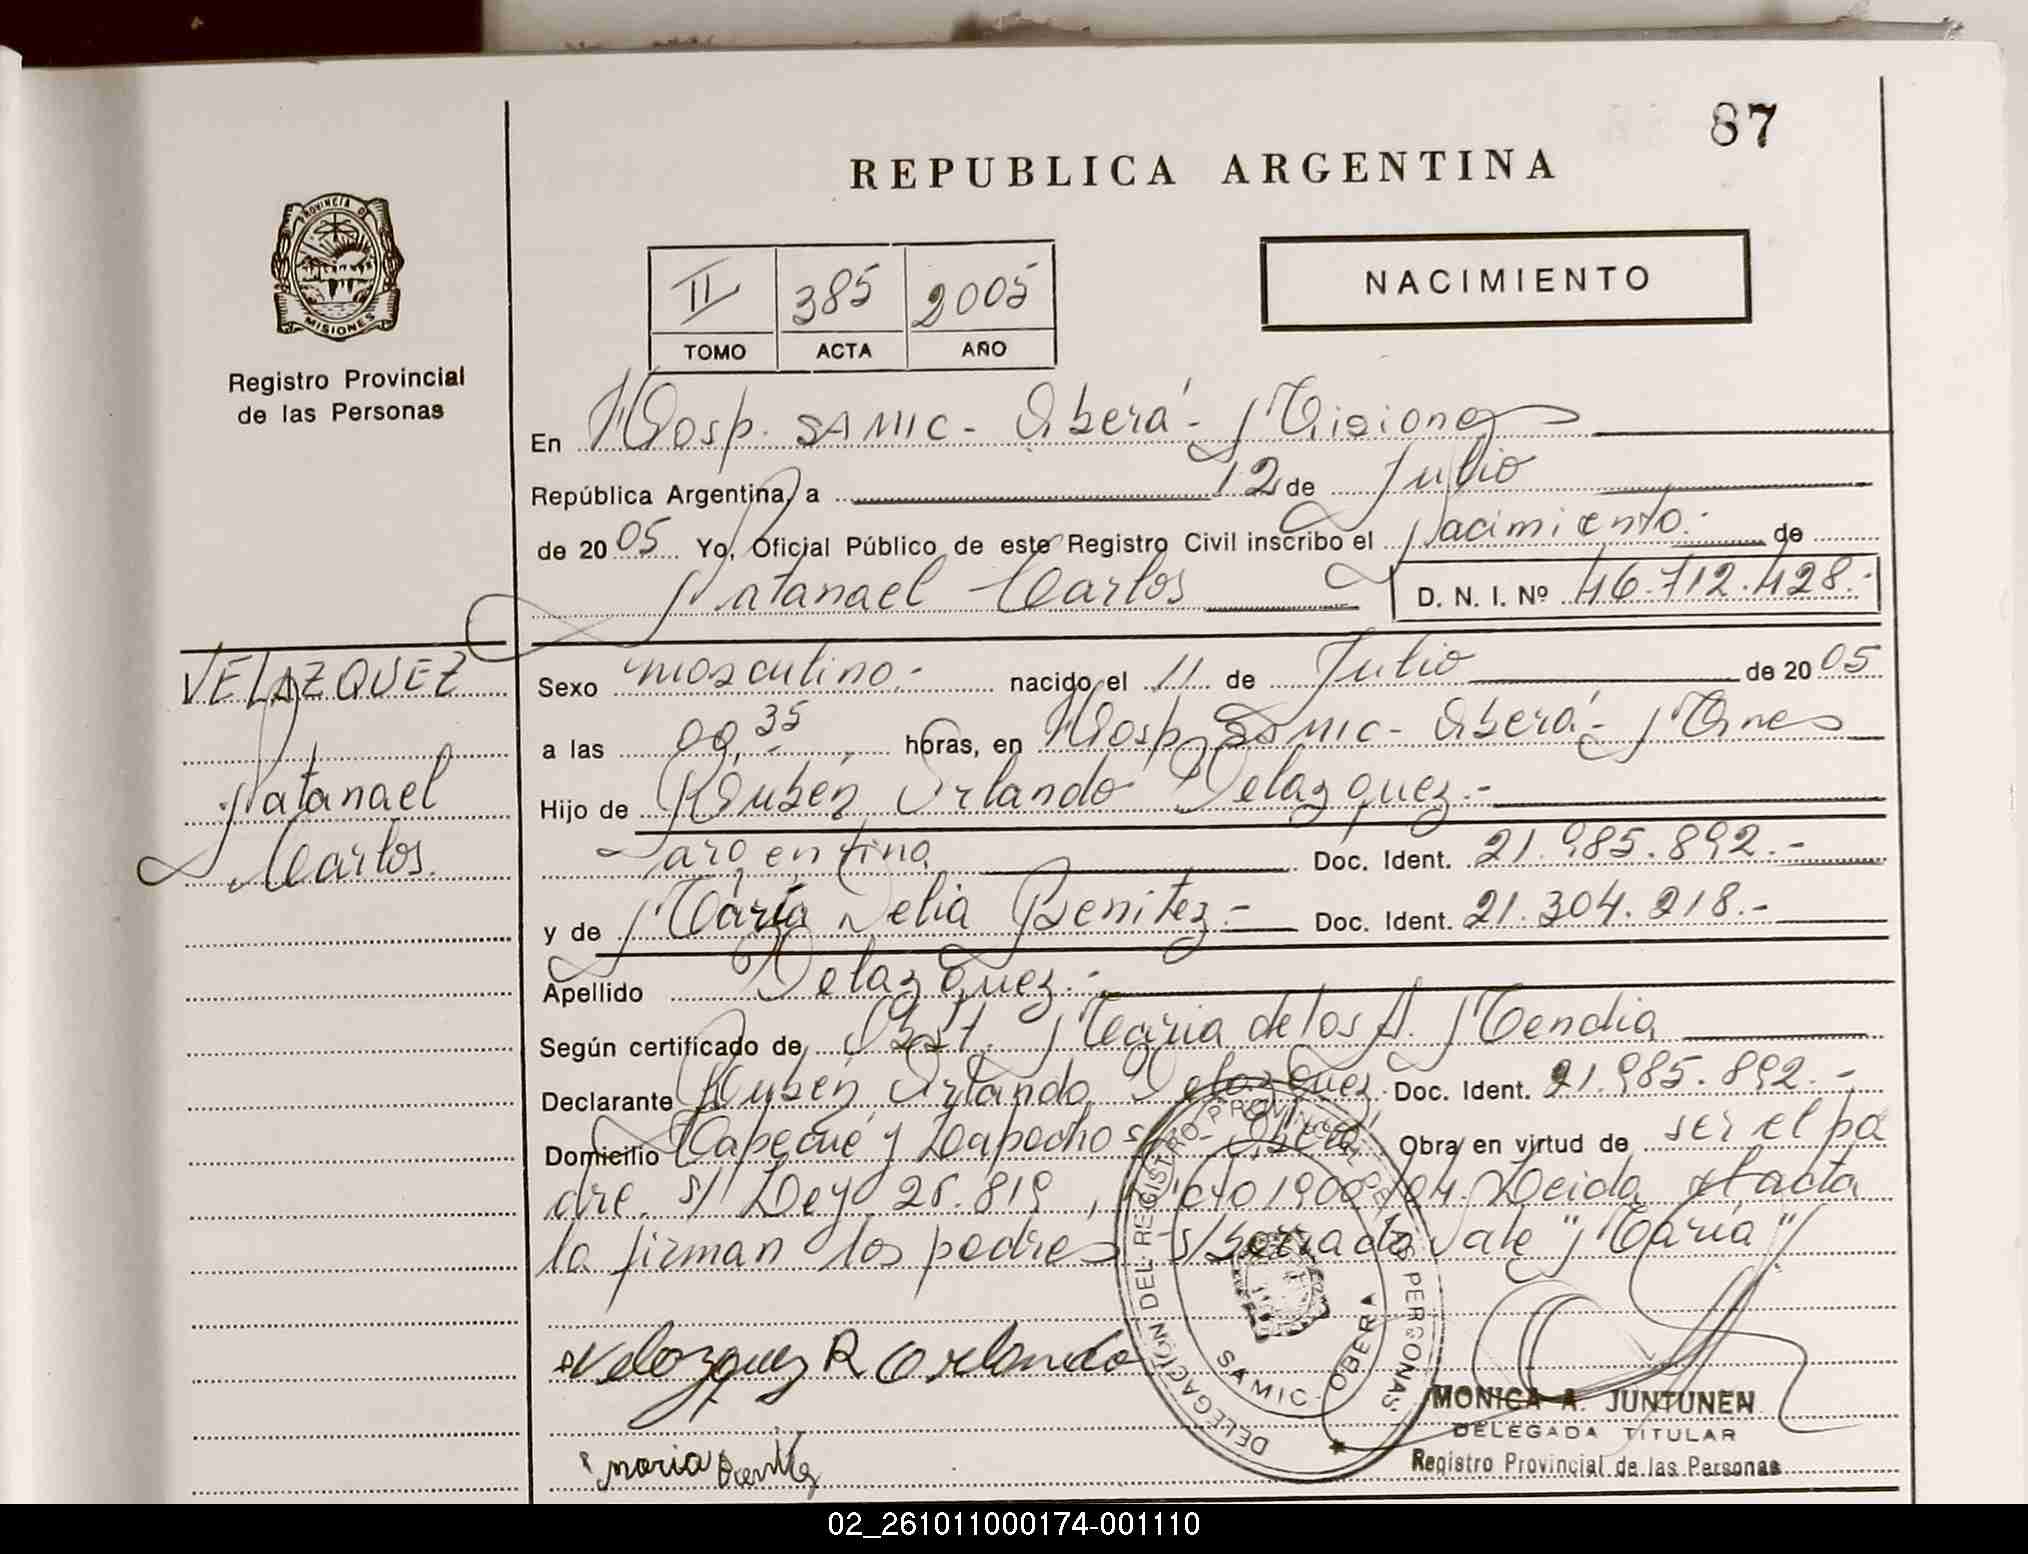 87
REPUBLICA ARGENTINA
PROVINCIA DE
MISIONES
Registro Provincial
de las Personas
II 385 2005
TOMO ACTA AÑO
NACIMIENTO
En Hosp. SAMIC - Oberá - Misiones
República Argentina, a 12 de Julio
de 2005 Yo, Oficial Público de este Registro Civil inscribo el Nacimiento.- de
Natanael Carlos D. N. I. Nº 46.712.428.-
VELAZQUEZ
Natanael
Carlos.
Sexo masculino.- nacido el 11 de Julio de 2005
a las 00,35 horas, en Hosp. SAMIC - Oberá - Mnes
Hijo de Rubén Orlando Velazquez.-
argentino Doc. Ident. 21.985.892.-
y de María Delia Benitez.- Doc. Ident. 21.304.218.-
Apellido Velazquez.-
Según certificado de Obst. María de los A. Mendia
Declarante Rubén Orlando Velazquez Doc. Ident. 21.985.892.-
Domicilio y Lapacho s/n - Oberá Obra en virtud de ser el pa
dre. s/ Ley 26.819, 1900/04. Leida el acta
la firman los padres s/borrado vale "María"
Velazquez R Orlando
Maria Benitez
DELEGACIÓN DEL REGISTRO PROVINCIAL DE LAS PERSONAS
SAMIC - OBERA
MONICA A. JUNTUNEN
DELEGADA TITULAR
Registro Provincial de las Personas
02_261011000174-001110